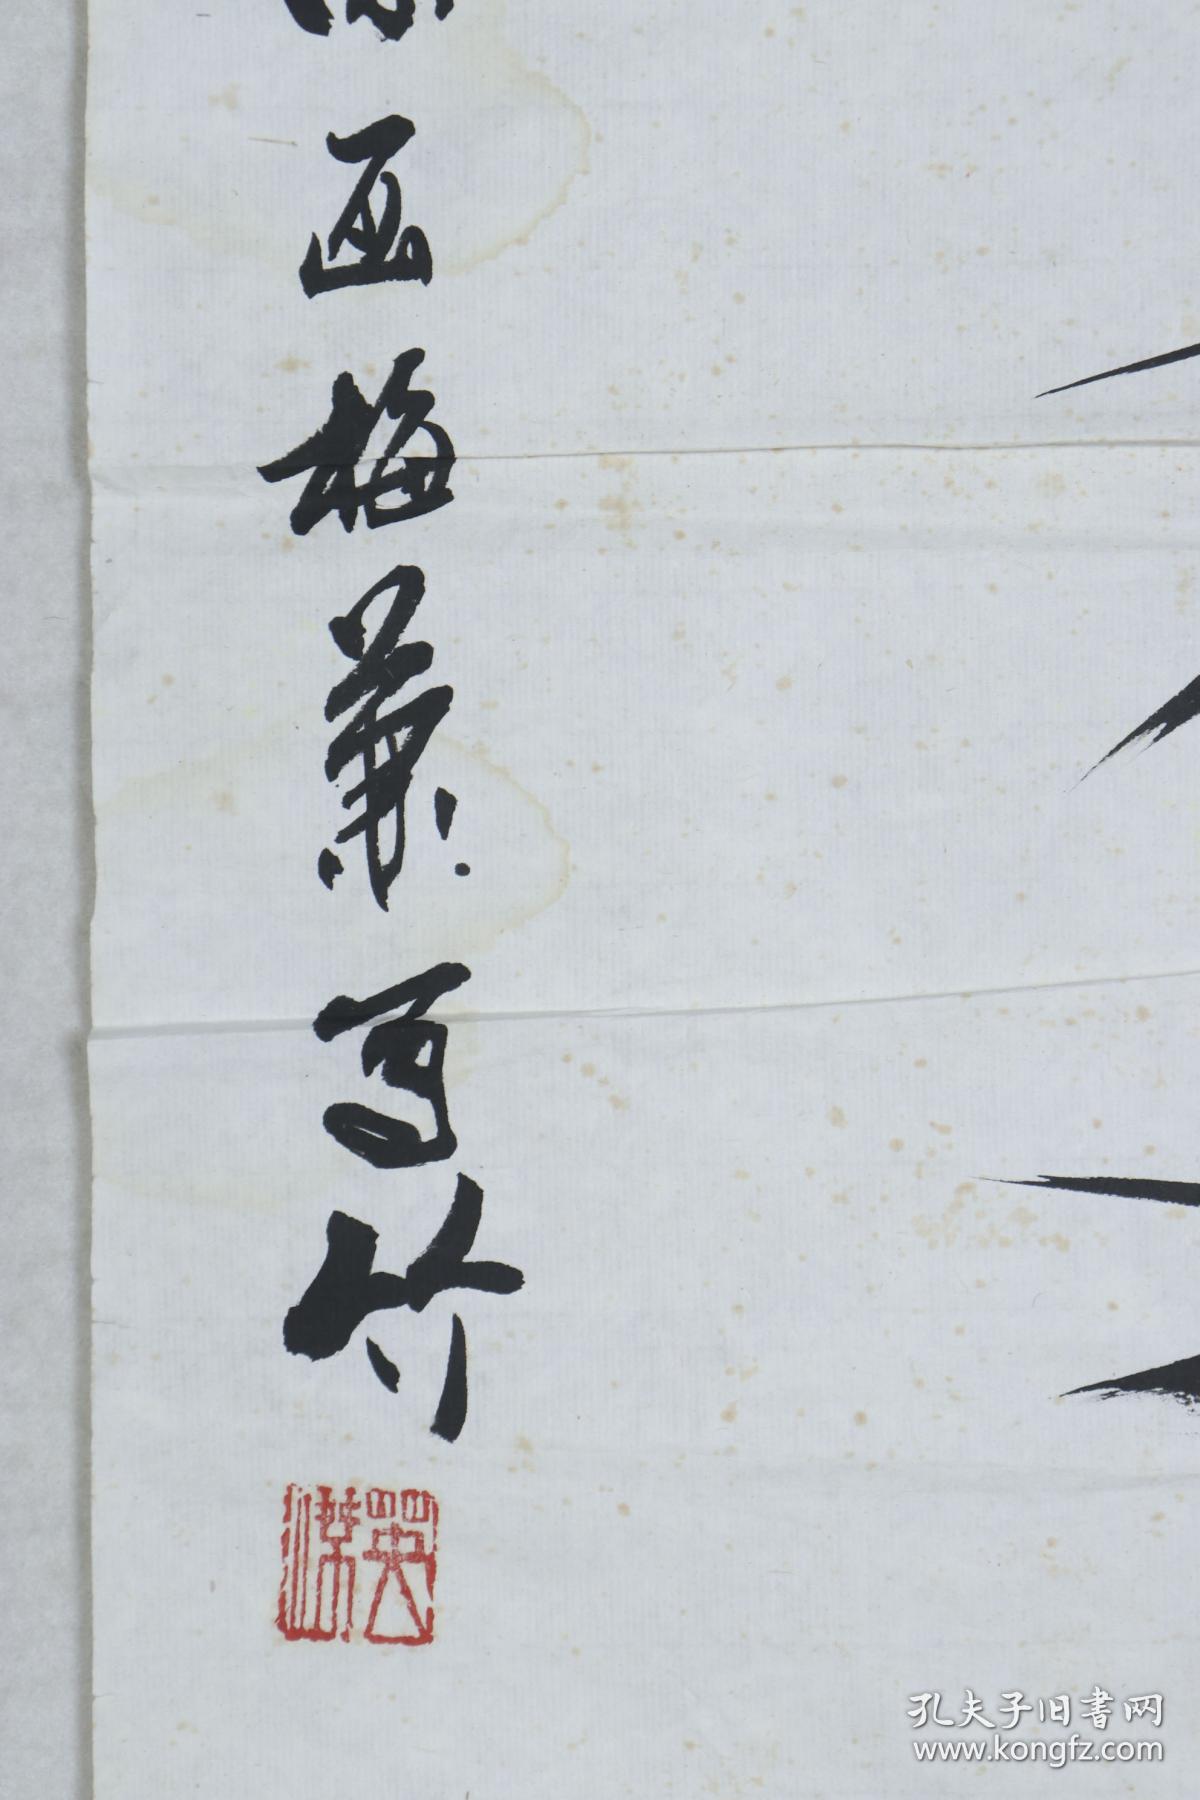 画梅兼写竹
英深
孔夫子旧書网
www.kongfz.com